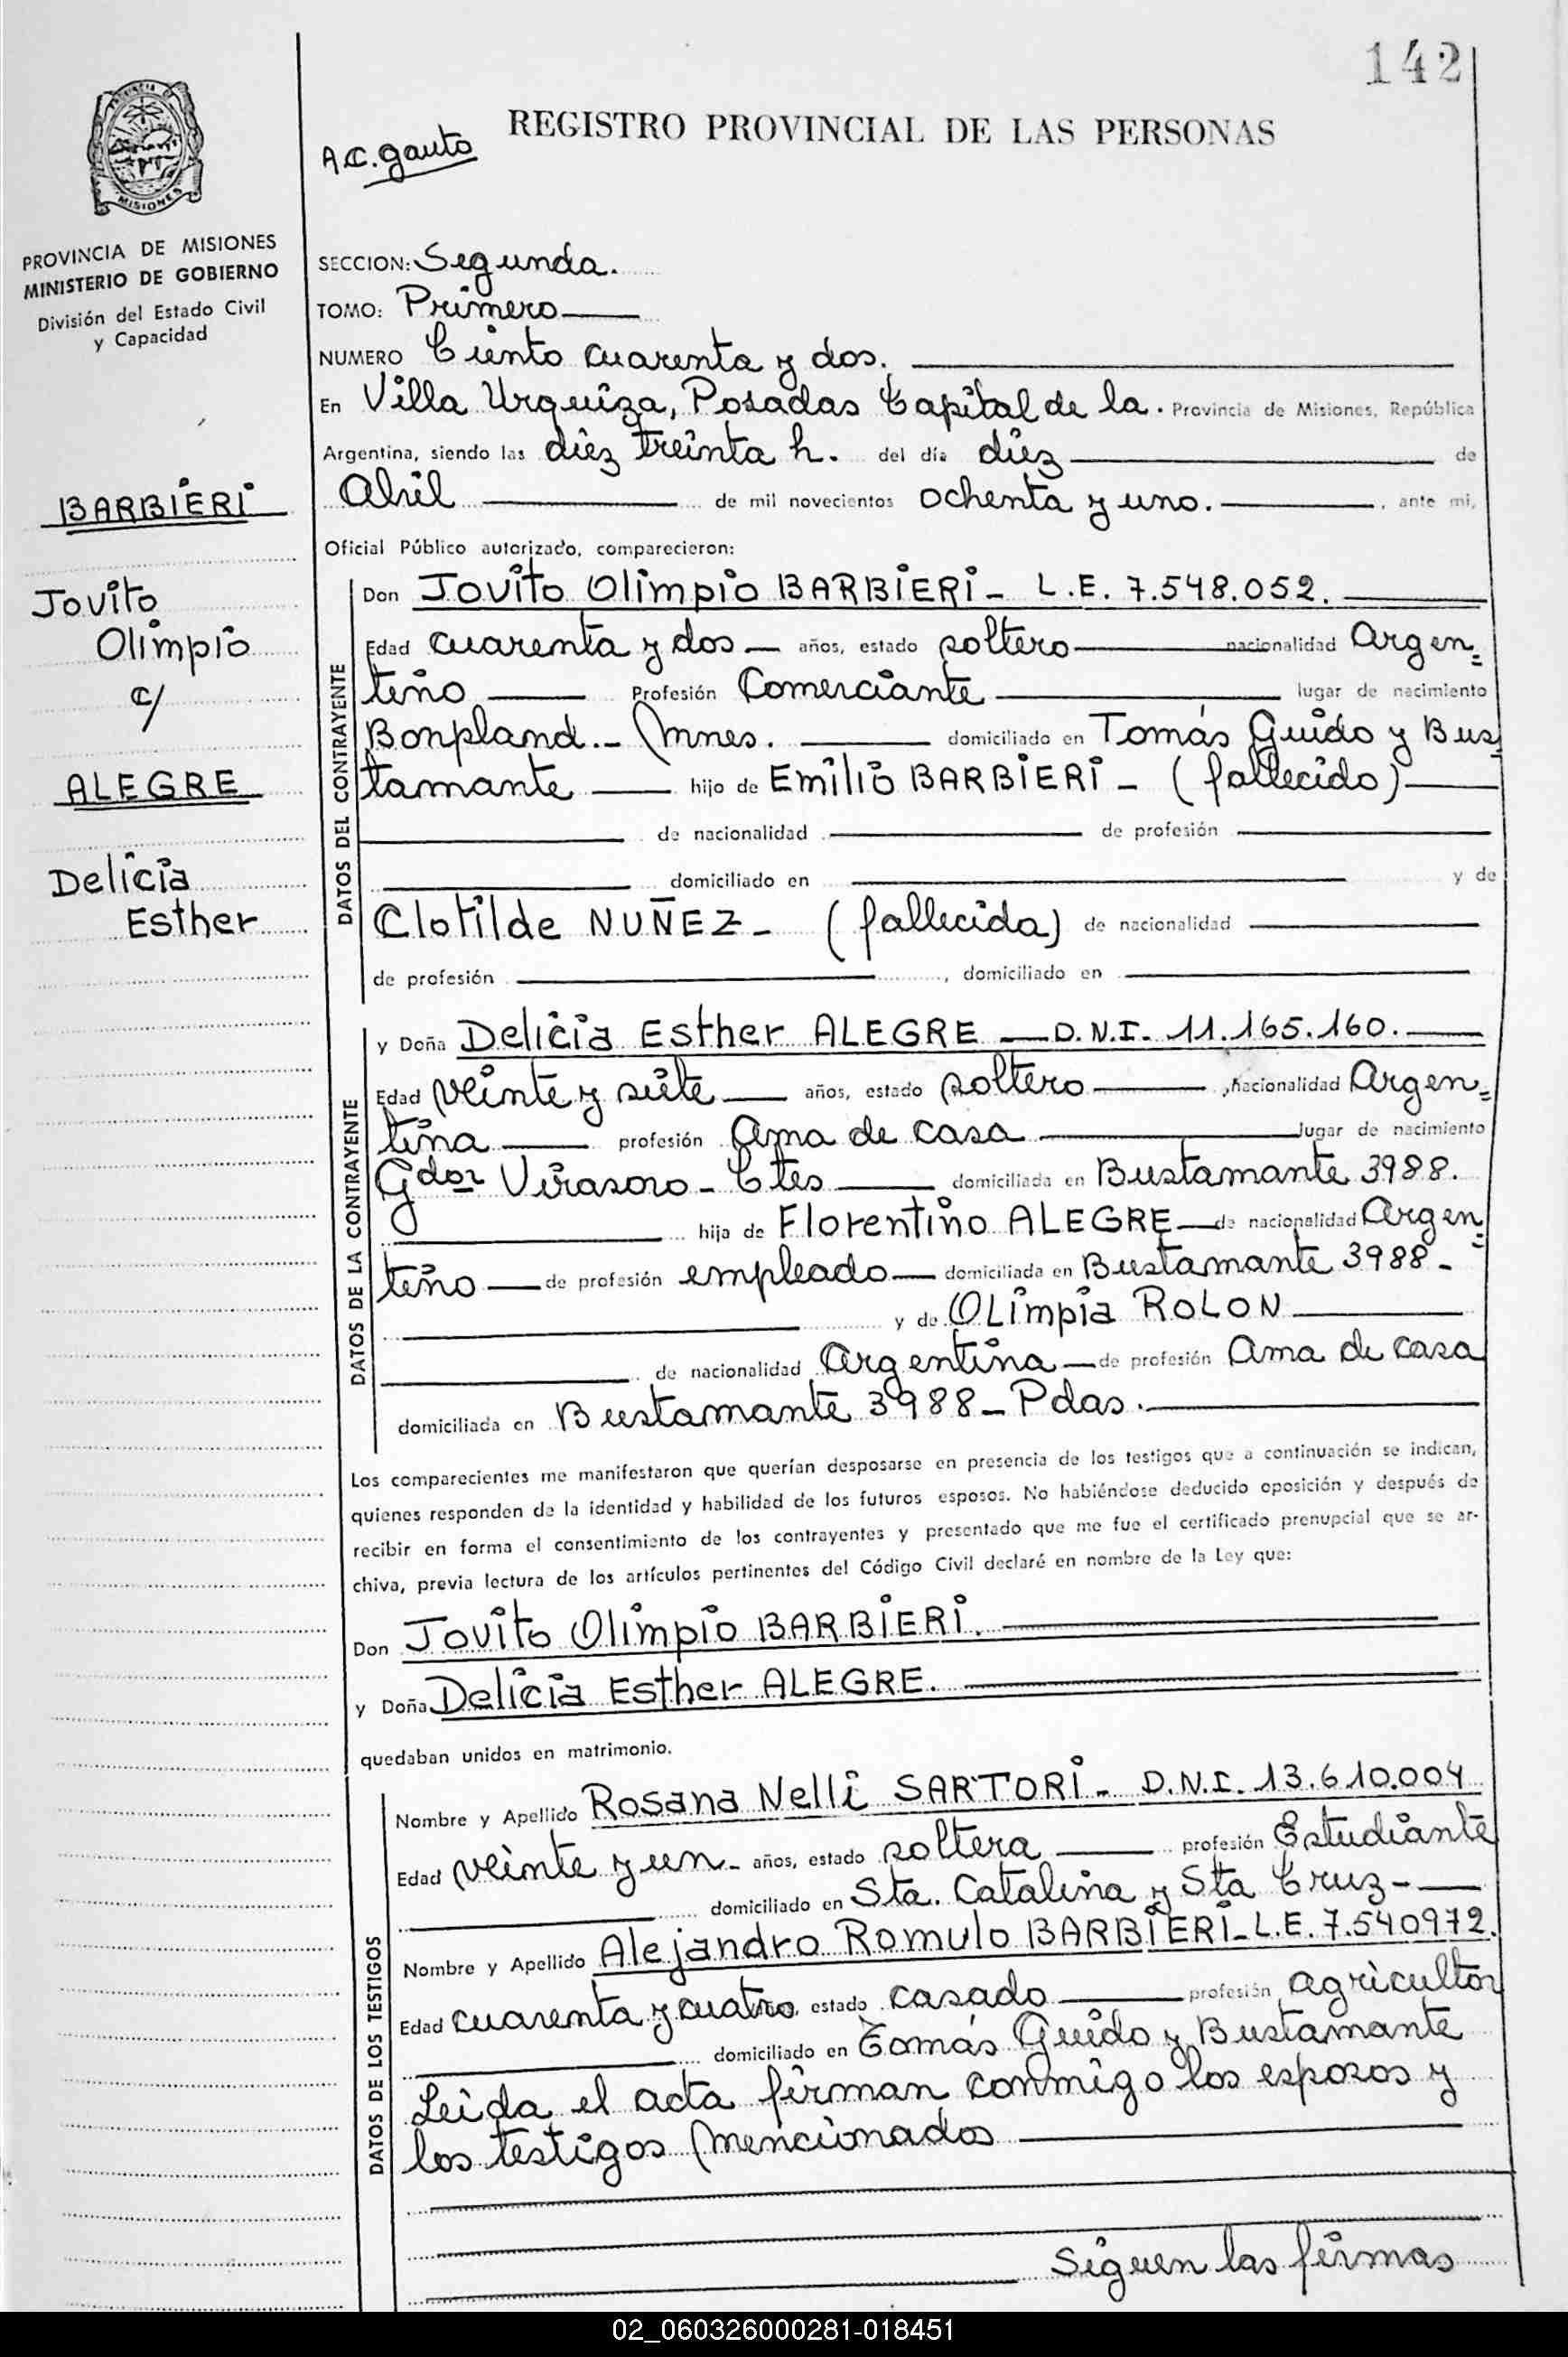 142
REGISTRO PROVINCIAL DE LAS PERSONAS
A.C. Gauto
PROVINCIA DE MISIONES
PROVINCIA DE MISIONES
MINISTERIO DE GOBIERNO
División del Estado Civil
y Capacidad
BARBIERI
Jovito
Olimpio
c/
ALEGRE
Delicia
Esther
SECCION: Segunda.
TOMO: Primero
NUMERO Ciento cuarenta y dos.
En Villa Urquiza, Posadas Capital de la. Provincia de Misiones, República
Argentina, siendo las diez treinta h. del día diez de
Abril de mil novecientos ochenta y uno. , ante mi,
Oficial Público autorizado, comparecieron:
DATOS DEL CONTRAYENTE
Don Jovito Olimpio BARBIERI - L.E. 7.548.052.
Edad cuarenta y dos - años, estado soltero nacionalidad Argen=
tino Profesión Comerciante lugar de nacimiento
Bonpland.- Mnes. domiciliado en Tomás Guido y Bus
tamante hijo de Emilio BARBIERI - (fallecido)
de nacionalidad de profesión
domiciliado en y de
Clotilde NUÑEZ - (fallecida) de nacionalidad
de profesión , domiciliado en
DATOS DE LA CONTRAYENTE
y Doña Delicia Esther ALEGRE - D.N.I. 11.165.160.
Edad veinte y siete años, estado soltero , nacionalidad Argen=
tina profesión Ama de casa lugar de nacimiento
Gdor Virasoro - Ctes domiciliada en Bustamante 3988.
hija de Florentino ALEGRE de nacionalidad Argen=
tino de profesión empleado domiciliada en Bustamante 3988 -
y de OLimpia ROLON
de nacionalidad Argentina de profesión Ama de casa
domiciliada en Bustamante 3988 - Pdas.
Los comparecientes me manifestaron que querían desposarse en presencia de los testigos que a continuación se indican,
quienes responden de la identidad y habilidad de los futuros esposos. No habiéndose deducido oposición y después de
recibir en forma el consentimiento de los contrayentes y presentado que me fue el certificado prenupcial que se ar-
chiva, previa lectura de los artículos pertinentes del Código Civil declaré en nombre de la Ley que:
Don Jovito Olimpio BARBIERI.
y Doña Delicia Esther ALEGRE.
quedaban unidos en matrimonio.
DATOS DE LOS TESTIGOS
Nombre y Apellido Rosana Nelli SARTORI - D.N.I. 13.610.004
Edad veinte y un - años, estado soltera profesión Estudiante
domiciliado en Sta. Catalina y Sta Cruz -
Nombre y Apellido Alejandro Romulo BARBIERI - L.E. 7.540972.
Edad cuarenta y cuatro, estado casado profesión agricultor
domiciliado en Tomás Guido y Bustamante
Leida el acta firman conmigo los esposos y
los testigos mencionados
Siguen las firmas
02_060326000281-018451